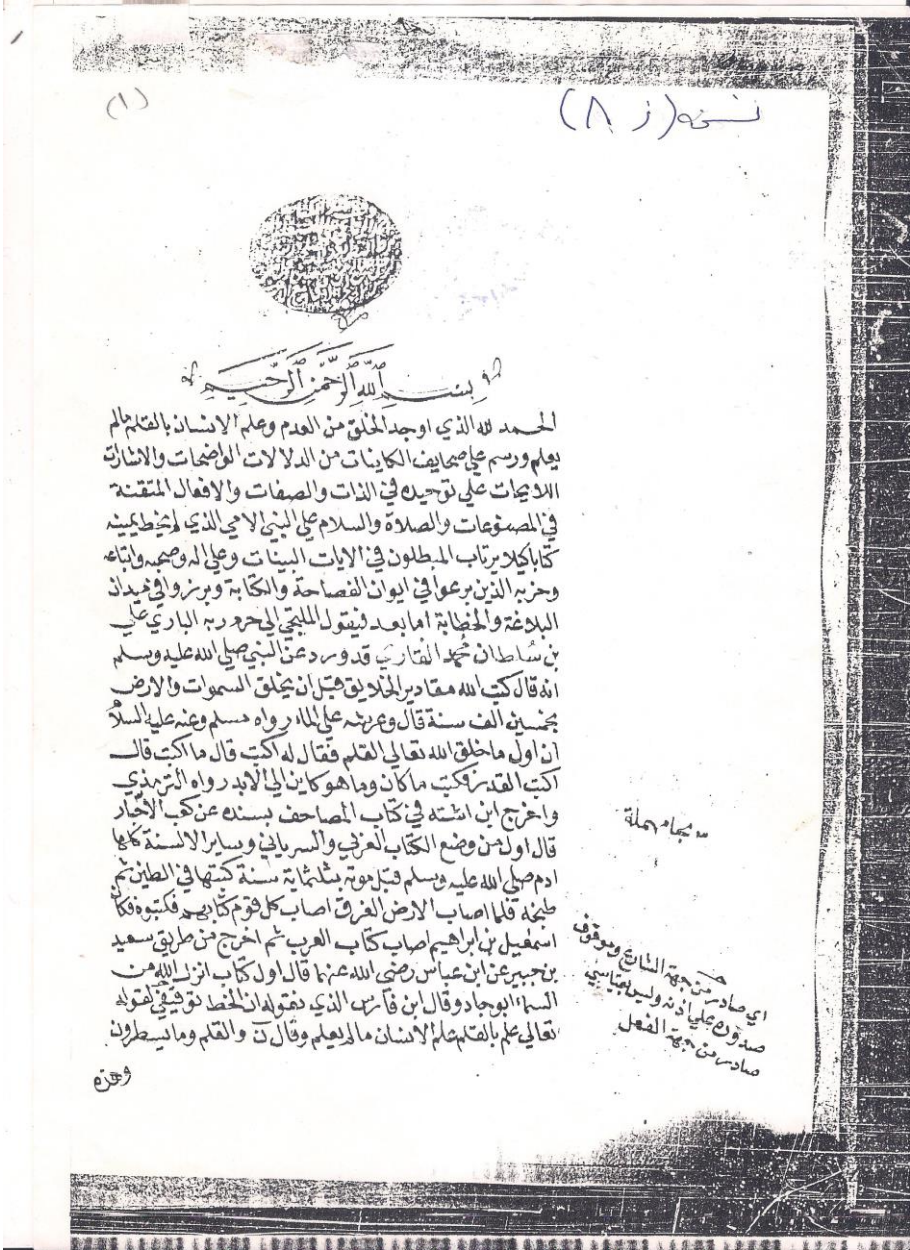 نسخة (ز ٨)
(١)
بسم الله الرحمن الرحيم
الحمد لله الذي اوجد الخلق من العدم وعلم الانسان بالقلم مالم
يعلم ورسم علي صحايف الكاينات من الدلالات الواضحات والاشارات
اللايحات علي توحيده في الذات والصفات والافعال المتقنة
في المصنوعات والصلاة والسلام علي النبي الامي الذي لم يخط بيمينه
كتابا كيلا يرتاب المبطلون في الايات البينات وعلي اله وصحبه واتباعه
وحزبه الذين برعوا في ايوان الفصاحة والكتابة وبرزوا في ميدان
البلاغة والخطابة اما بعد فيقول الملتجي الي حرم ربه الباري علي
بن سلطان محمد القاري قد ورد عن النبي صلي الله عليه وسلم
انه قال كتب الله مقادير الخلايق قبل ان يخلق السموات والارض
بخمسين الف سنة قال وعرشه علي الماء رواه مسلم وعنه عليه السلام
ان اول ما خلق الله تعالي القلم فقال له اكتب قال ما اكتب قال
اكتب القدر فكتب ما كان وما هو كاين الي الابد رواه الترمذي
واخرج ابن اشته في كتاب المصاحف بسنده عن كعب الاحبار
قال اول من وضع الكتاب العربي والسرياني وساير الالسنة كلها
ادم صلي الله عليه وسلم قبل موته بثلثماية سنة كتبها في الطين ثم
طبخه فلما اصاب الارض الغرق اصاب كل قوم كتابهم فكتبوه فكان
اسمعيل بن ابراهيم اصاب كتاب العرب ثم اخرج من طريق سعيد
بن جبير عن ابن عباس رضي الله عنهما قال اول كتاب انزل الله من
السماء ابو جاد وقال ابن فارس الذي نقوله ان الخط توقيفي لقوله
تعالي علم بالقلم علم الانسان ما لم يعلم وقال ن والقلم وما يسطرون
وهذه
بحاء مهملة
اي صادر من جهة الشارع وموقوف
صدوره علي اذنه وليس بقياسي
صادر من جهة الفعل